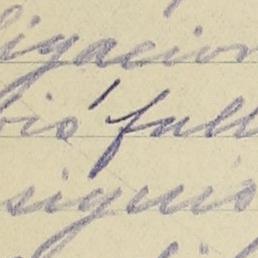 ligacion
bió full
siguió